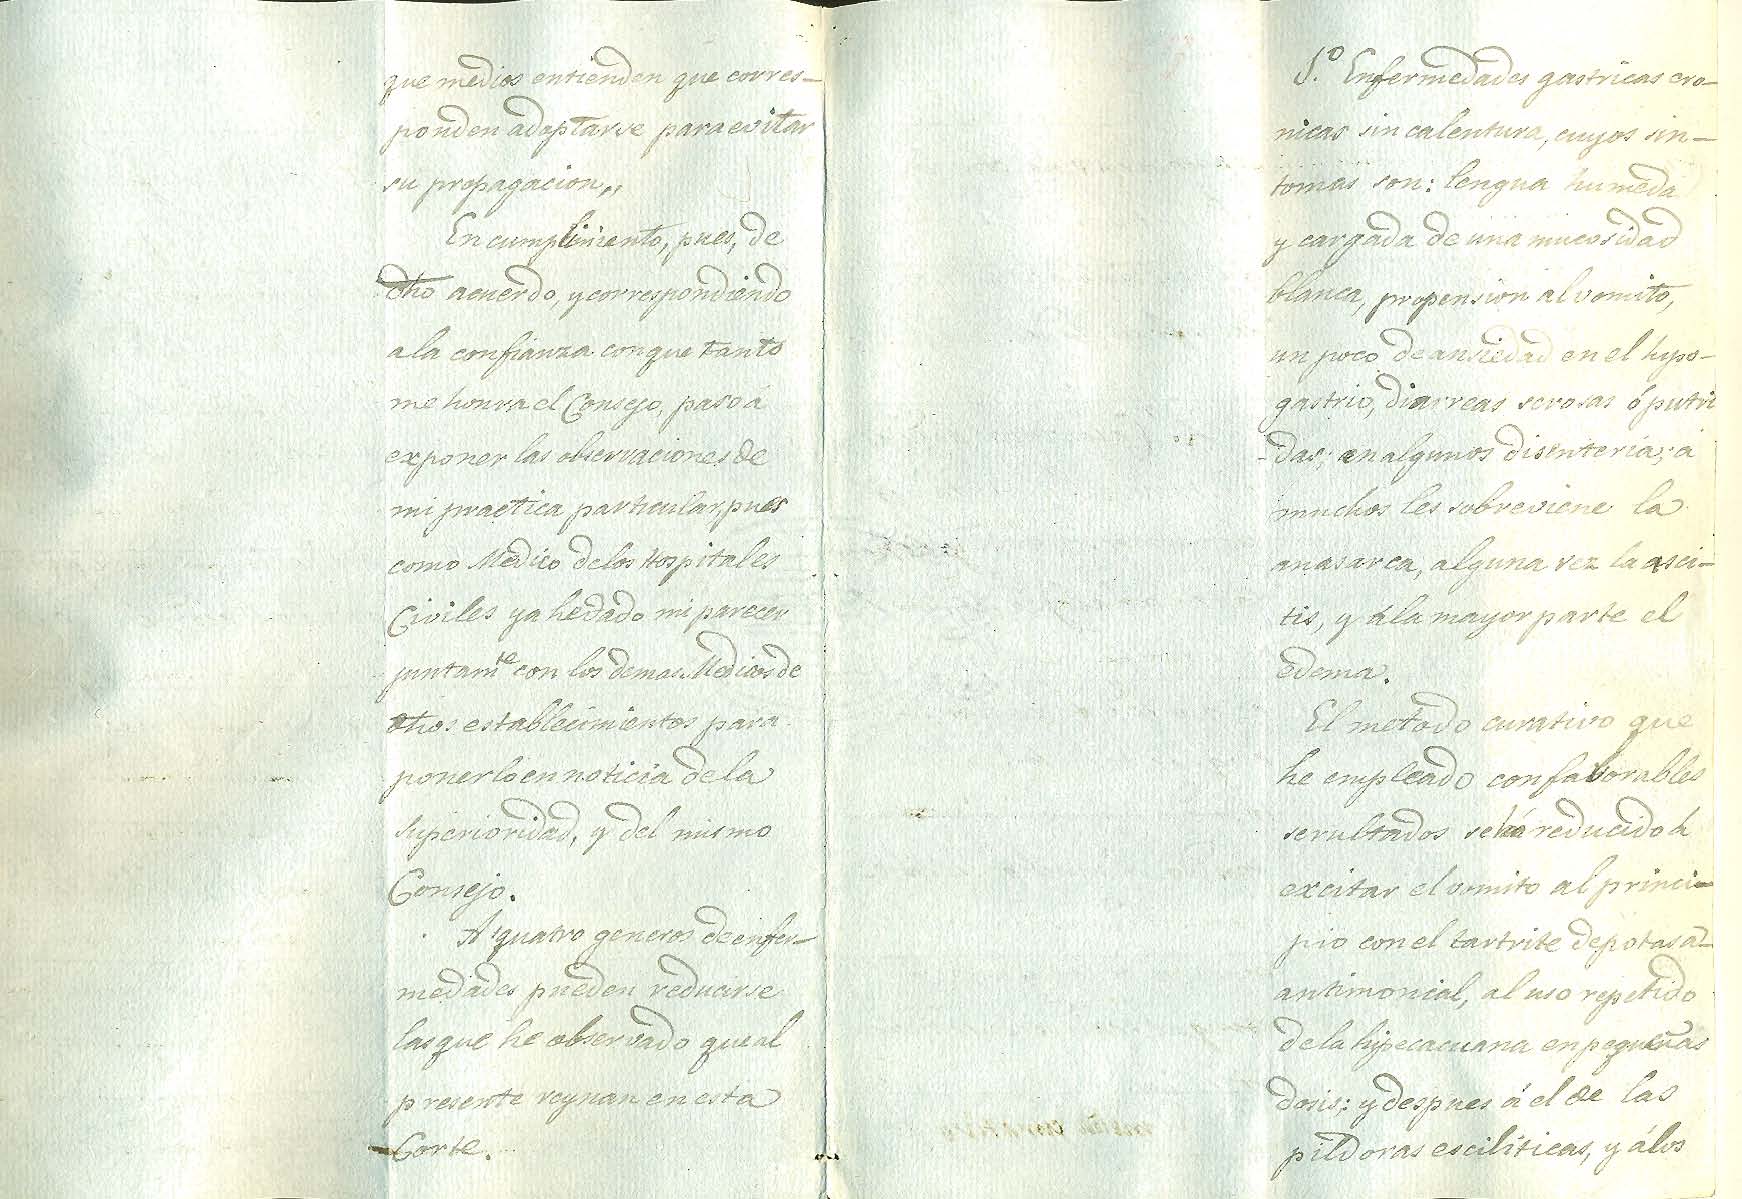 que medios entienden que corres-
ponden adaptarse para evitar
su propagacion,,
En cumplimiento, pues, de
dho acuerdo, y correspondiendo
a la confianza con que tanto
me honra el Consejo, paso á
exponer las observaciones de
mi practica particular, pues
como Medico de los Hospitales
Civiles ya he dado mi parecer
juntamte con los demas Medicos de
dhos establecimientos para
ponerlo en noticia de la
Superioridad, y del mismo
Consejo.
A quatro generos de enfer-
medades pueden reducirse
las que he observado que al
presente reynan en esta
Corte.
1.º Enfermedades gastricas cro-
nicas sin calentura, cuyos sin-
tomas son: lengua humeda
y cargada de una mucosidad
blanca, propension al vomito,
un poco de ansiedad en el hypo-
gastrio, diarreas serosas ó putri
-das; en algunos disenteria; a
muchos les sobreviene la
anasarca, alguna vez la asci-
tis, y á la mayor parte el
edema.
El metodo curativo que
he empleado con faborables
serultados se há reducido á
excitar el vomito al princi-
pio con el tartrite de potasa
antimonial, al uso repetido
de la hipecacuana en pequeñas
dosis; y despues á el de las
pildoras esciliticas, y á los